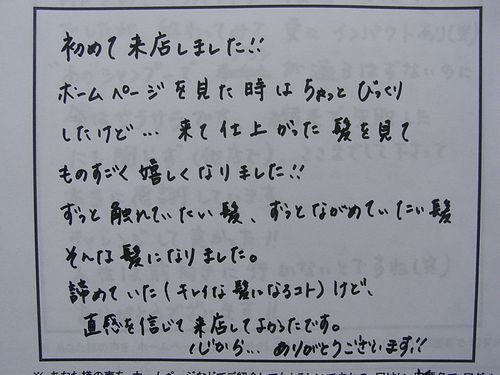 初めて来店しました!!
ホームページを見た時はちょっとびっくり
したけど… 来て仕上がった髪を見て
ものすごく嬉しくなりました!!
ずっと触れていたい髪、ずっとながめていたい髪
そんな髪になりました。
諦めていた(キレイな髪になるコト)けど、
直感を信じて来店してよかったです。
心から… ありがとうございます!!